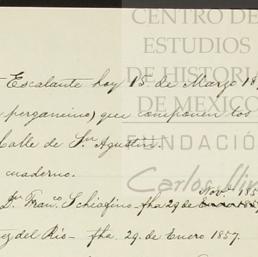 CENTRO DE
ESTUDIOS
DE HISTORI
DE MEXICO
FUNDACIÓN
Carlos
Escalante hoy 15 de Marzo 18
pergamino) que componen los
Calle de Sn Agustin.
cuaderno.
Novbe. 185
Dn. Franco. Schiafino - fha 29 de Enero 185
del Rio - fha 29. de Enero 1857.